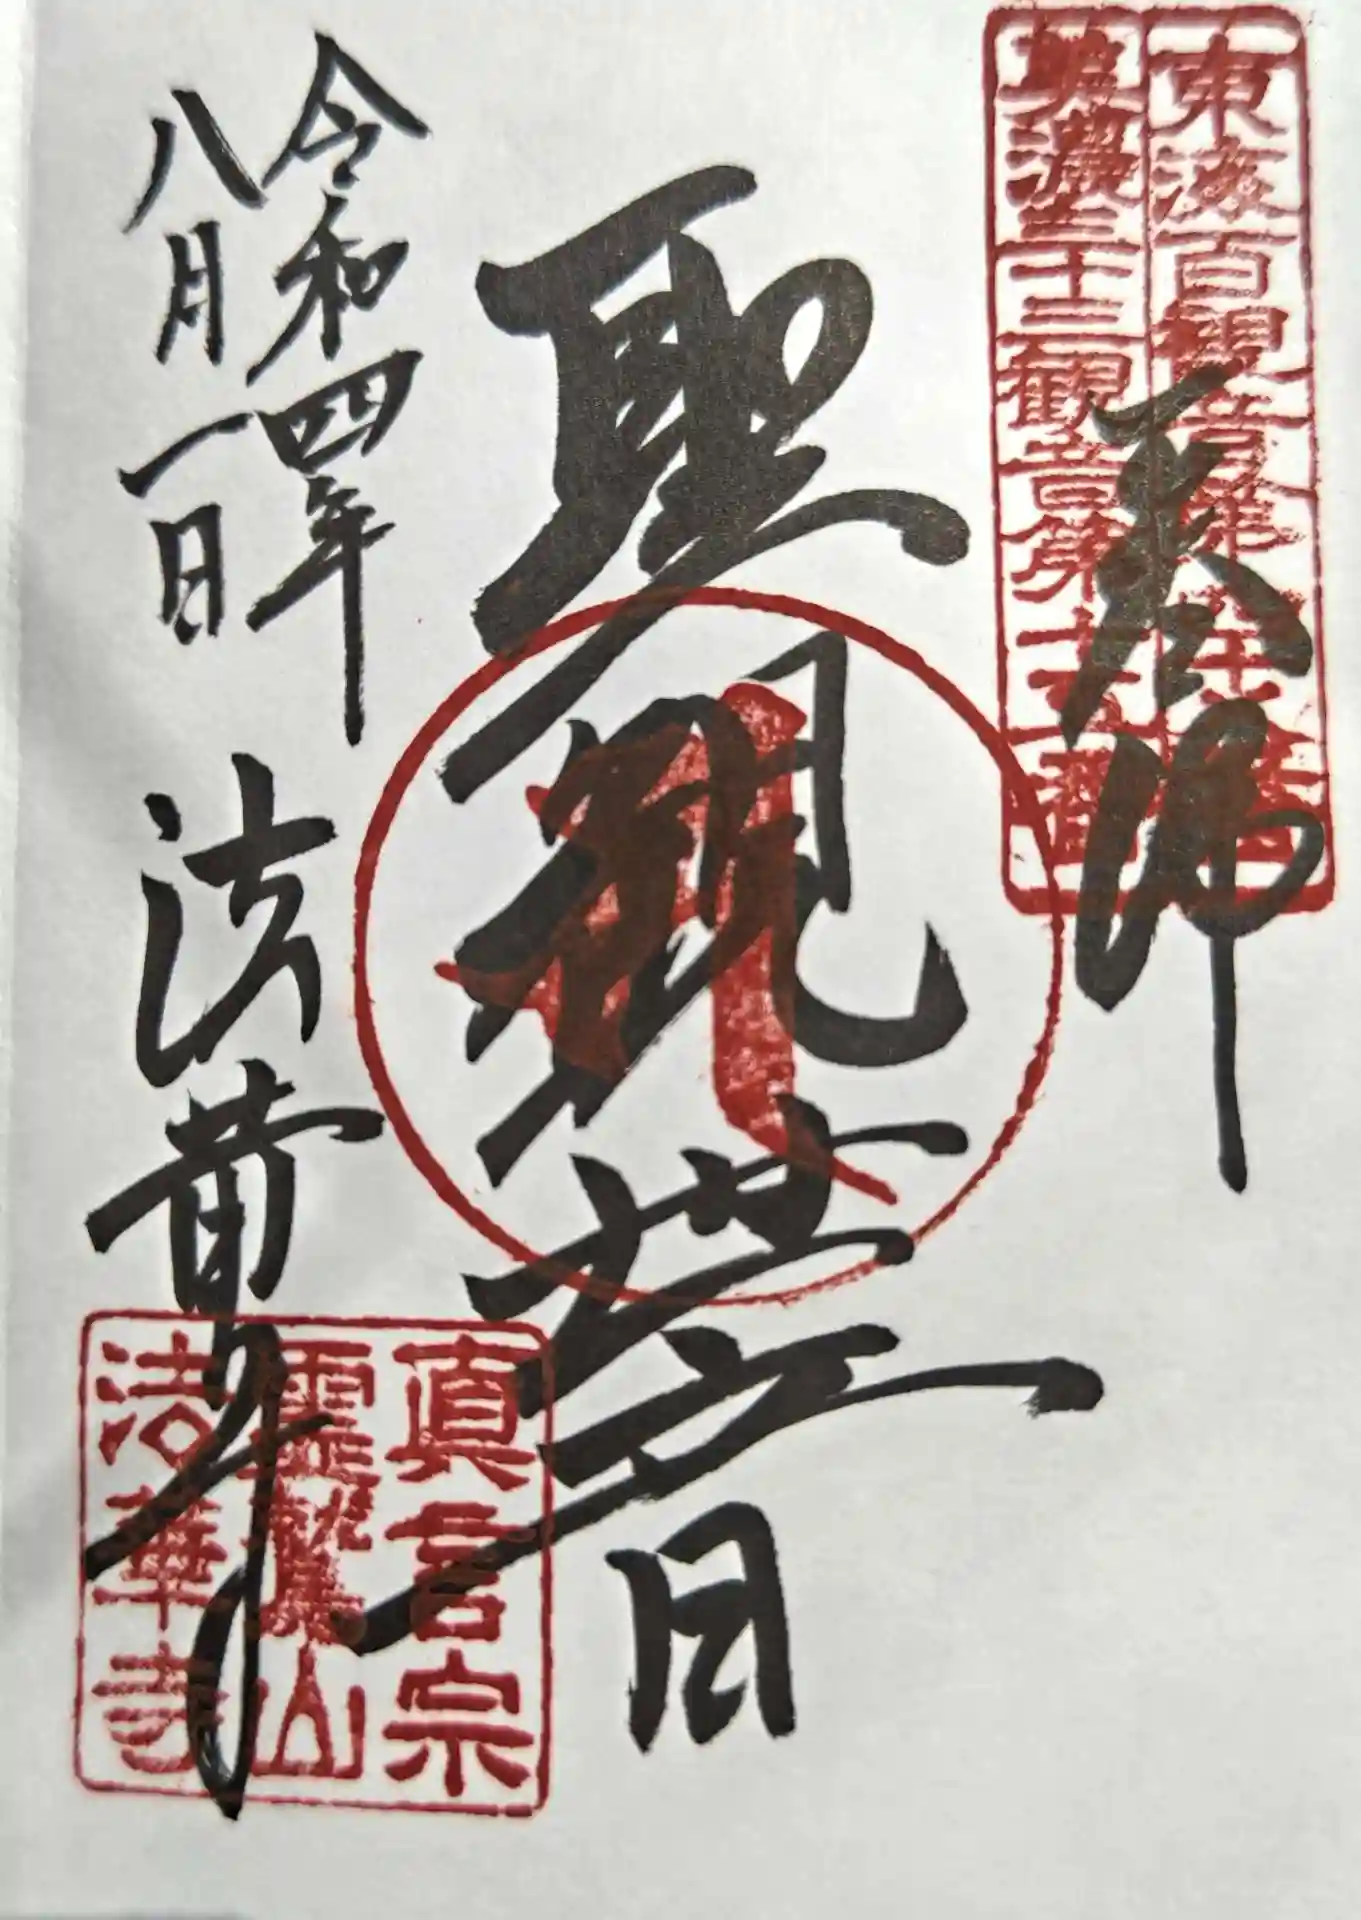 東海百観音第
美濃三十三観音第十五番
奉拝
聖観世音
令和四年
八月一日
法華寺
真言宗
霊鷲山
法華寺